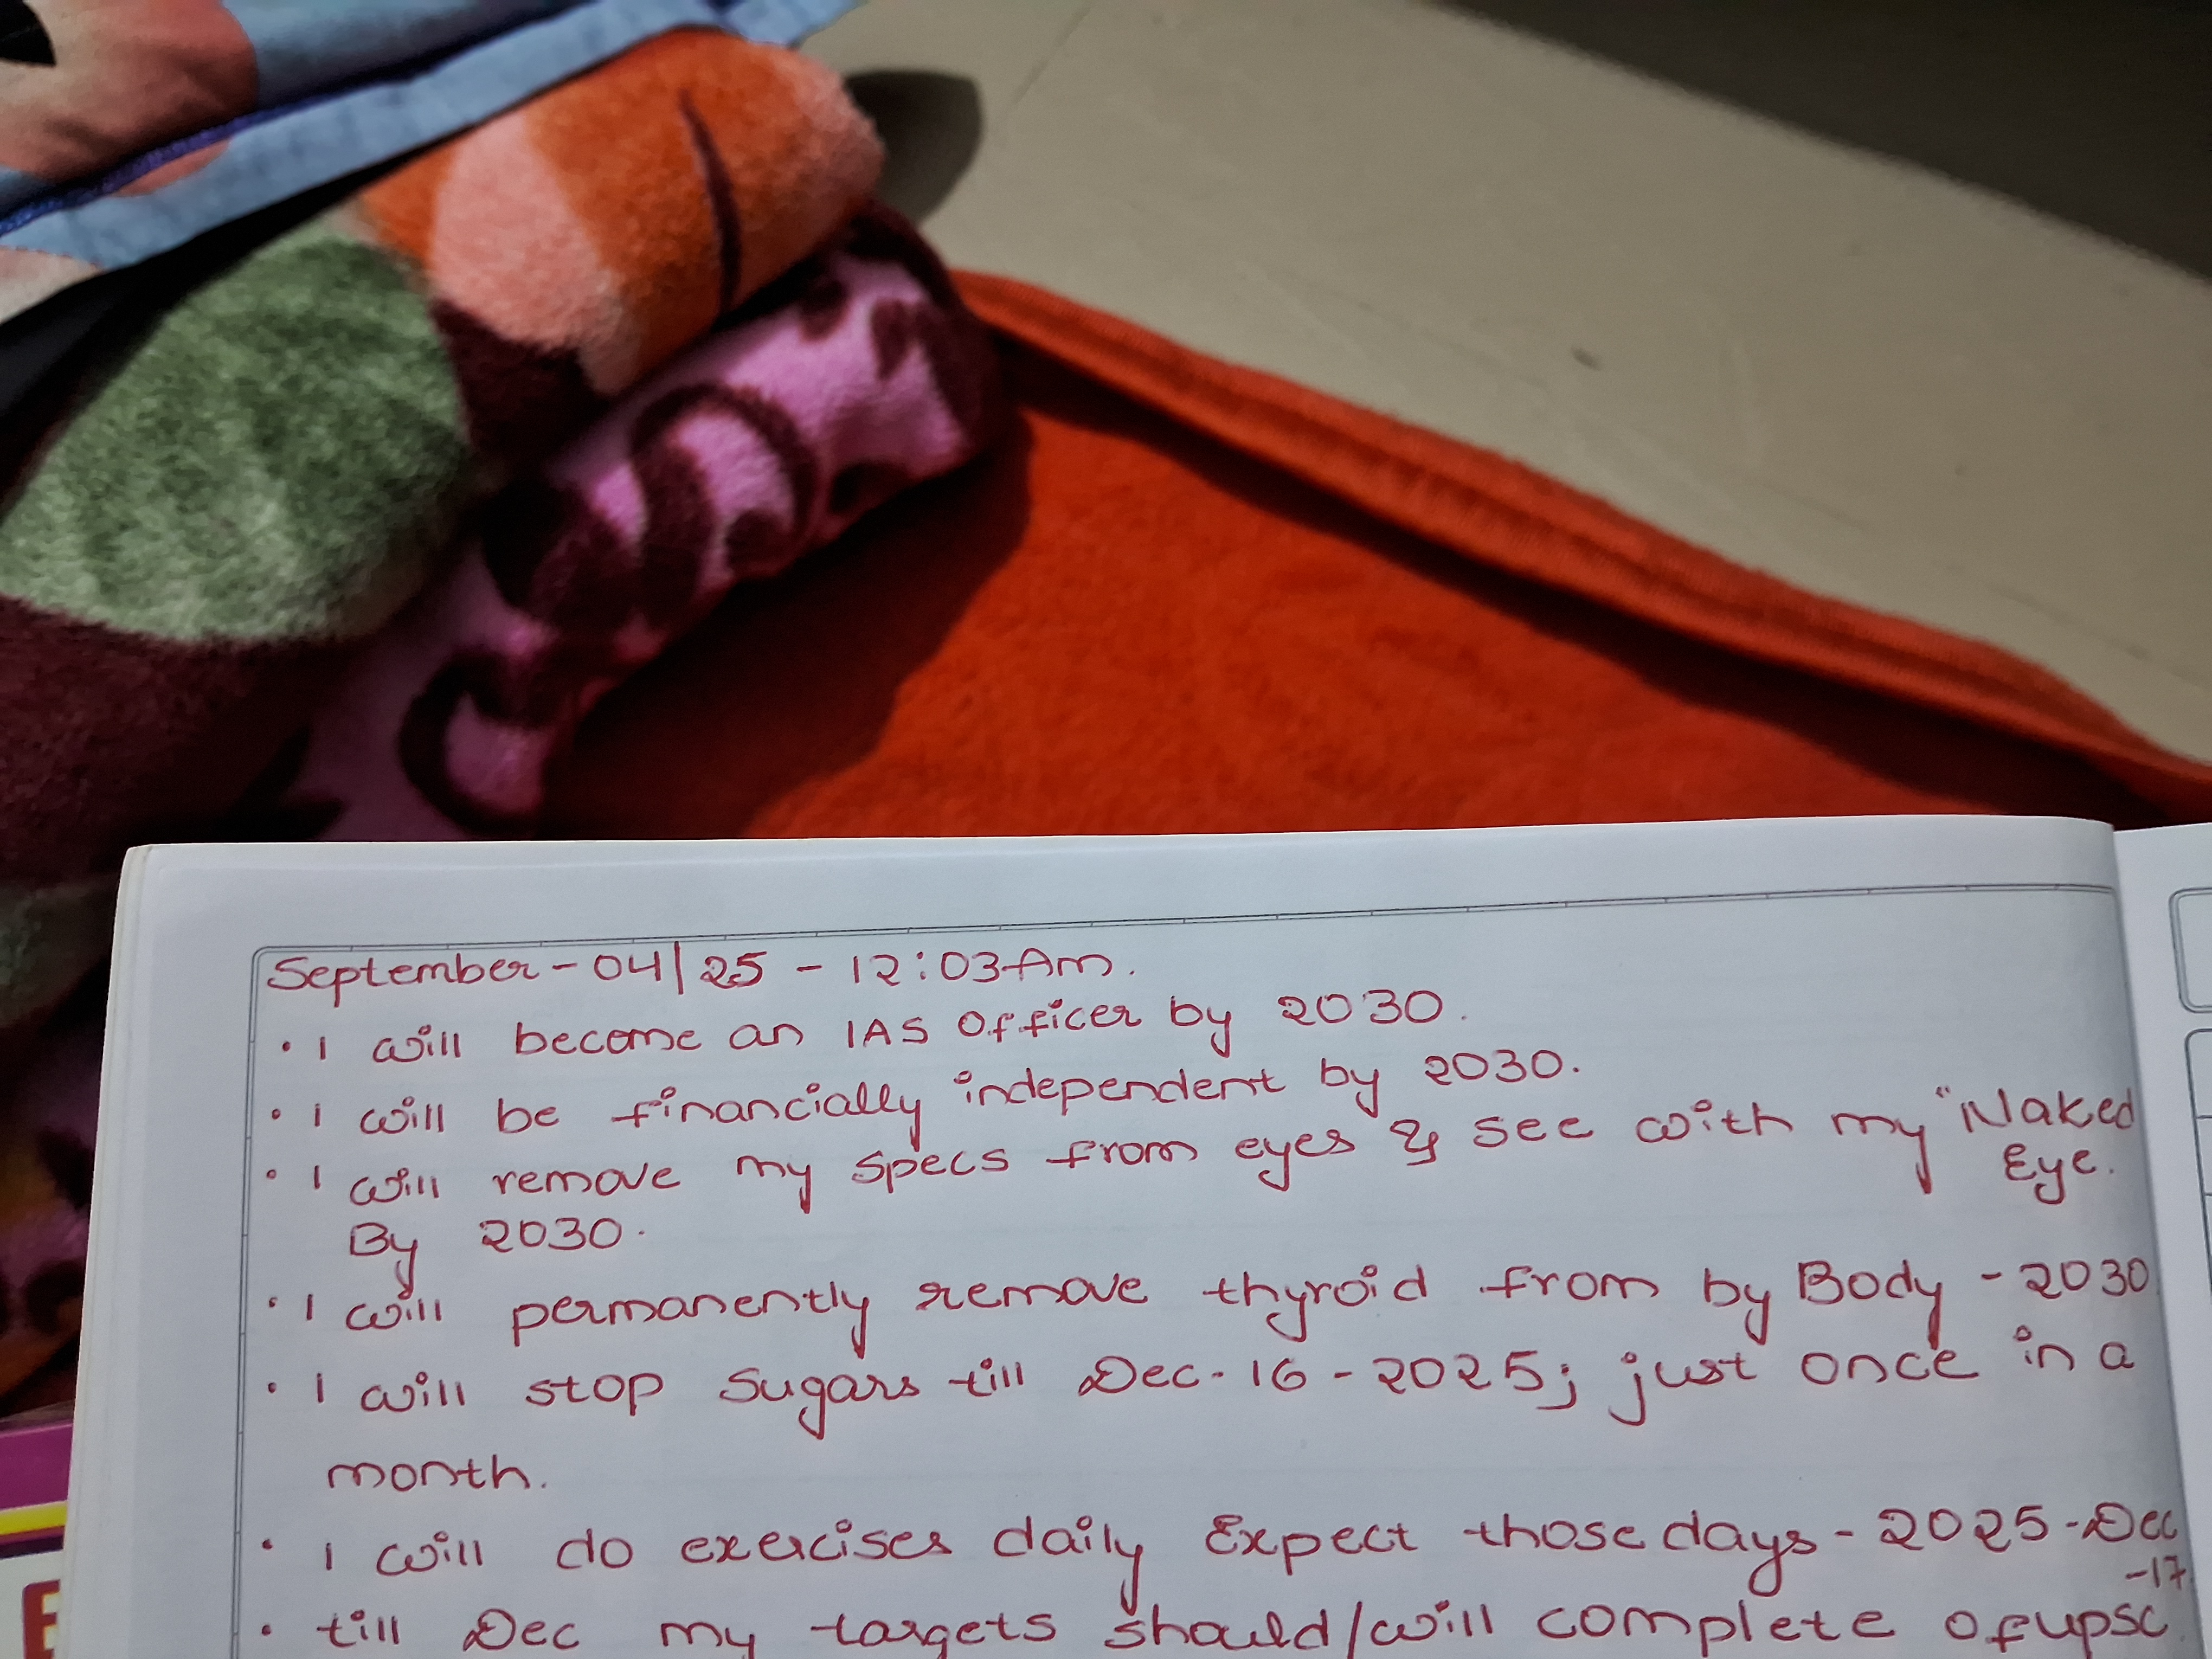 September - 04/25 - 12:03 Am.
• I will become an IAS Officer by 2030.
• I will be financially independent by 2030.
• I will remove my specs from eyes & see with my "Naked
Eye.
By 2030.
• I will permanently remove thyroid from by Body - 2030
• I will stop sugars till Dec-16-2025; just once in a
month.
• I will do exercises daily Expect those days - 2025-Dec
-17
• till Dec my targets should/will complete of upsc
E